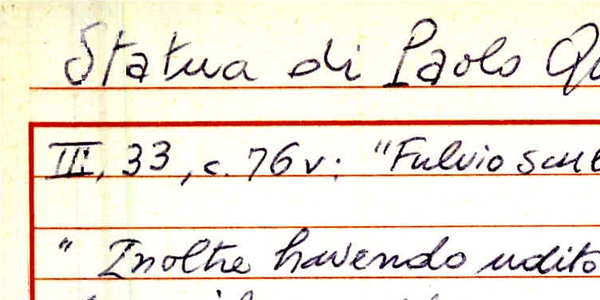 Statua di Paolo
III, 33, c. 76 v: "Fulvio
" Inoltre havendo udito